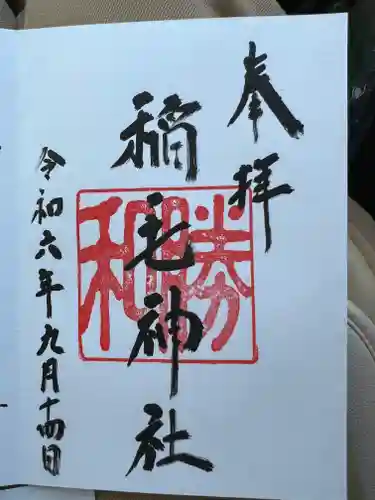 奉拝
稲毛神社
令和六年九月十四日